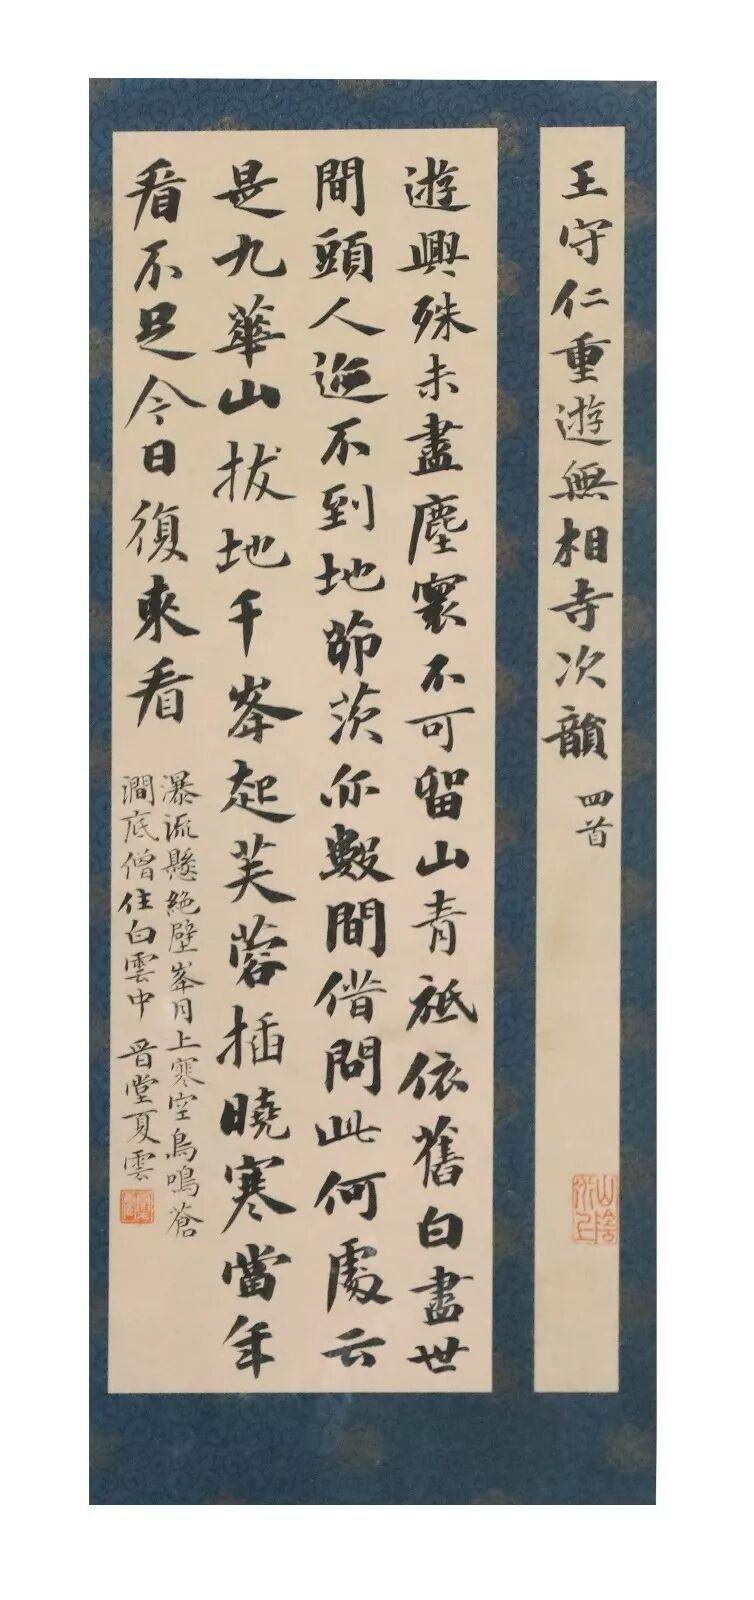 王守仁重遊無相寺次韻 四首
遊興殊未盡塵寰不可留山青祗依舊白盡世
間頭人迹不到地茆茨亦數間借問此何處云
是九華山拔地千峯起芙蓉插曉寒當年
看不足今日復來看
瀑流懸絶壁峯月上寒空鳥鳴蒼
澗底僧住白雲中 晉堂夏雲